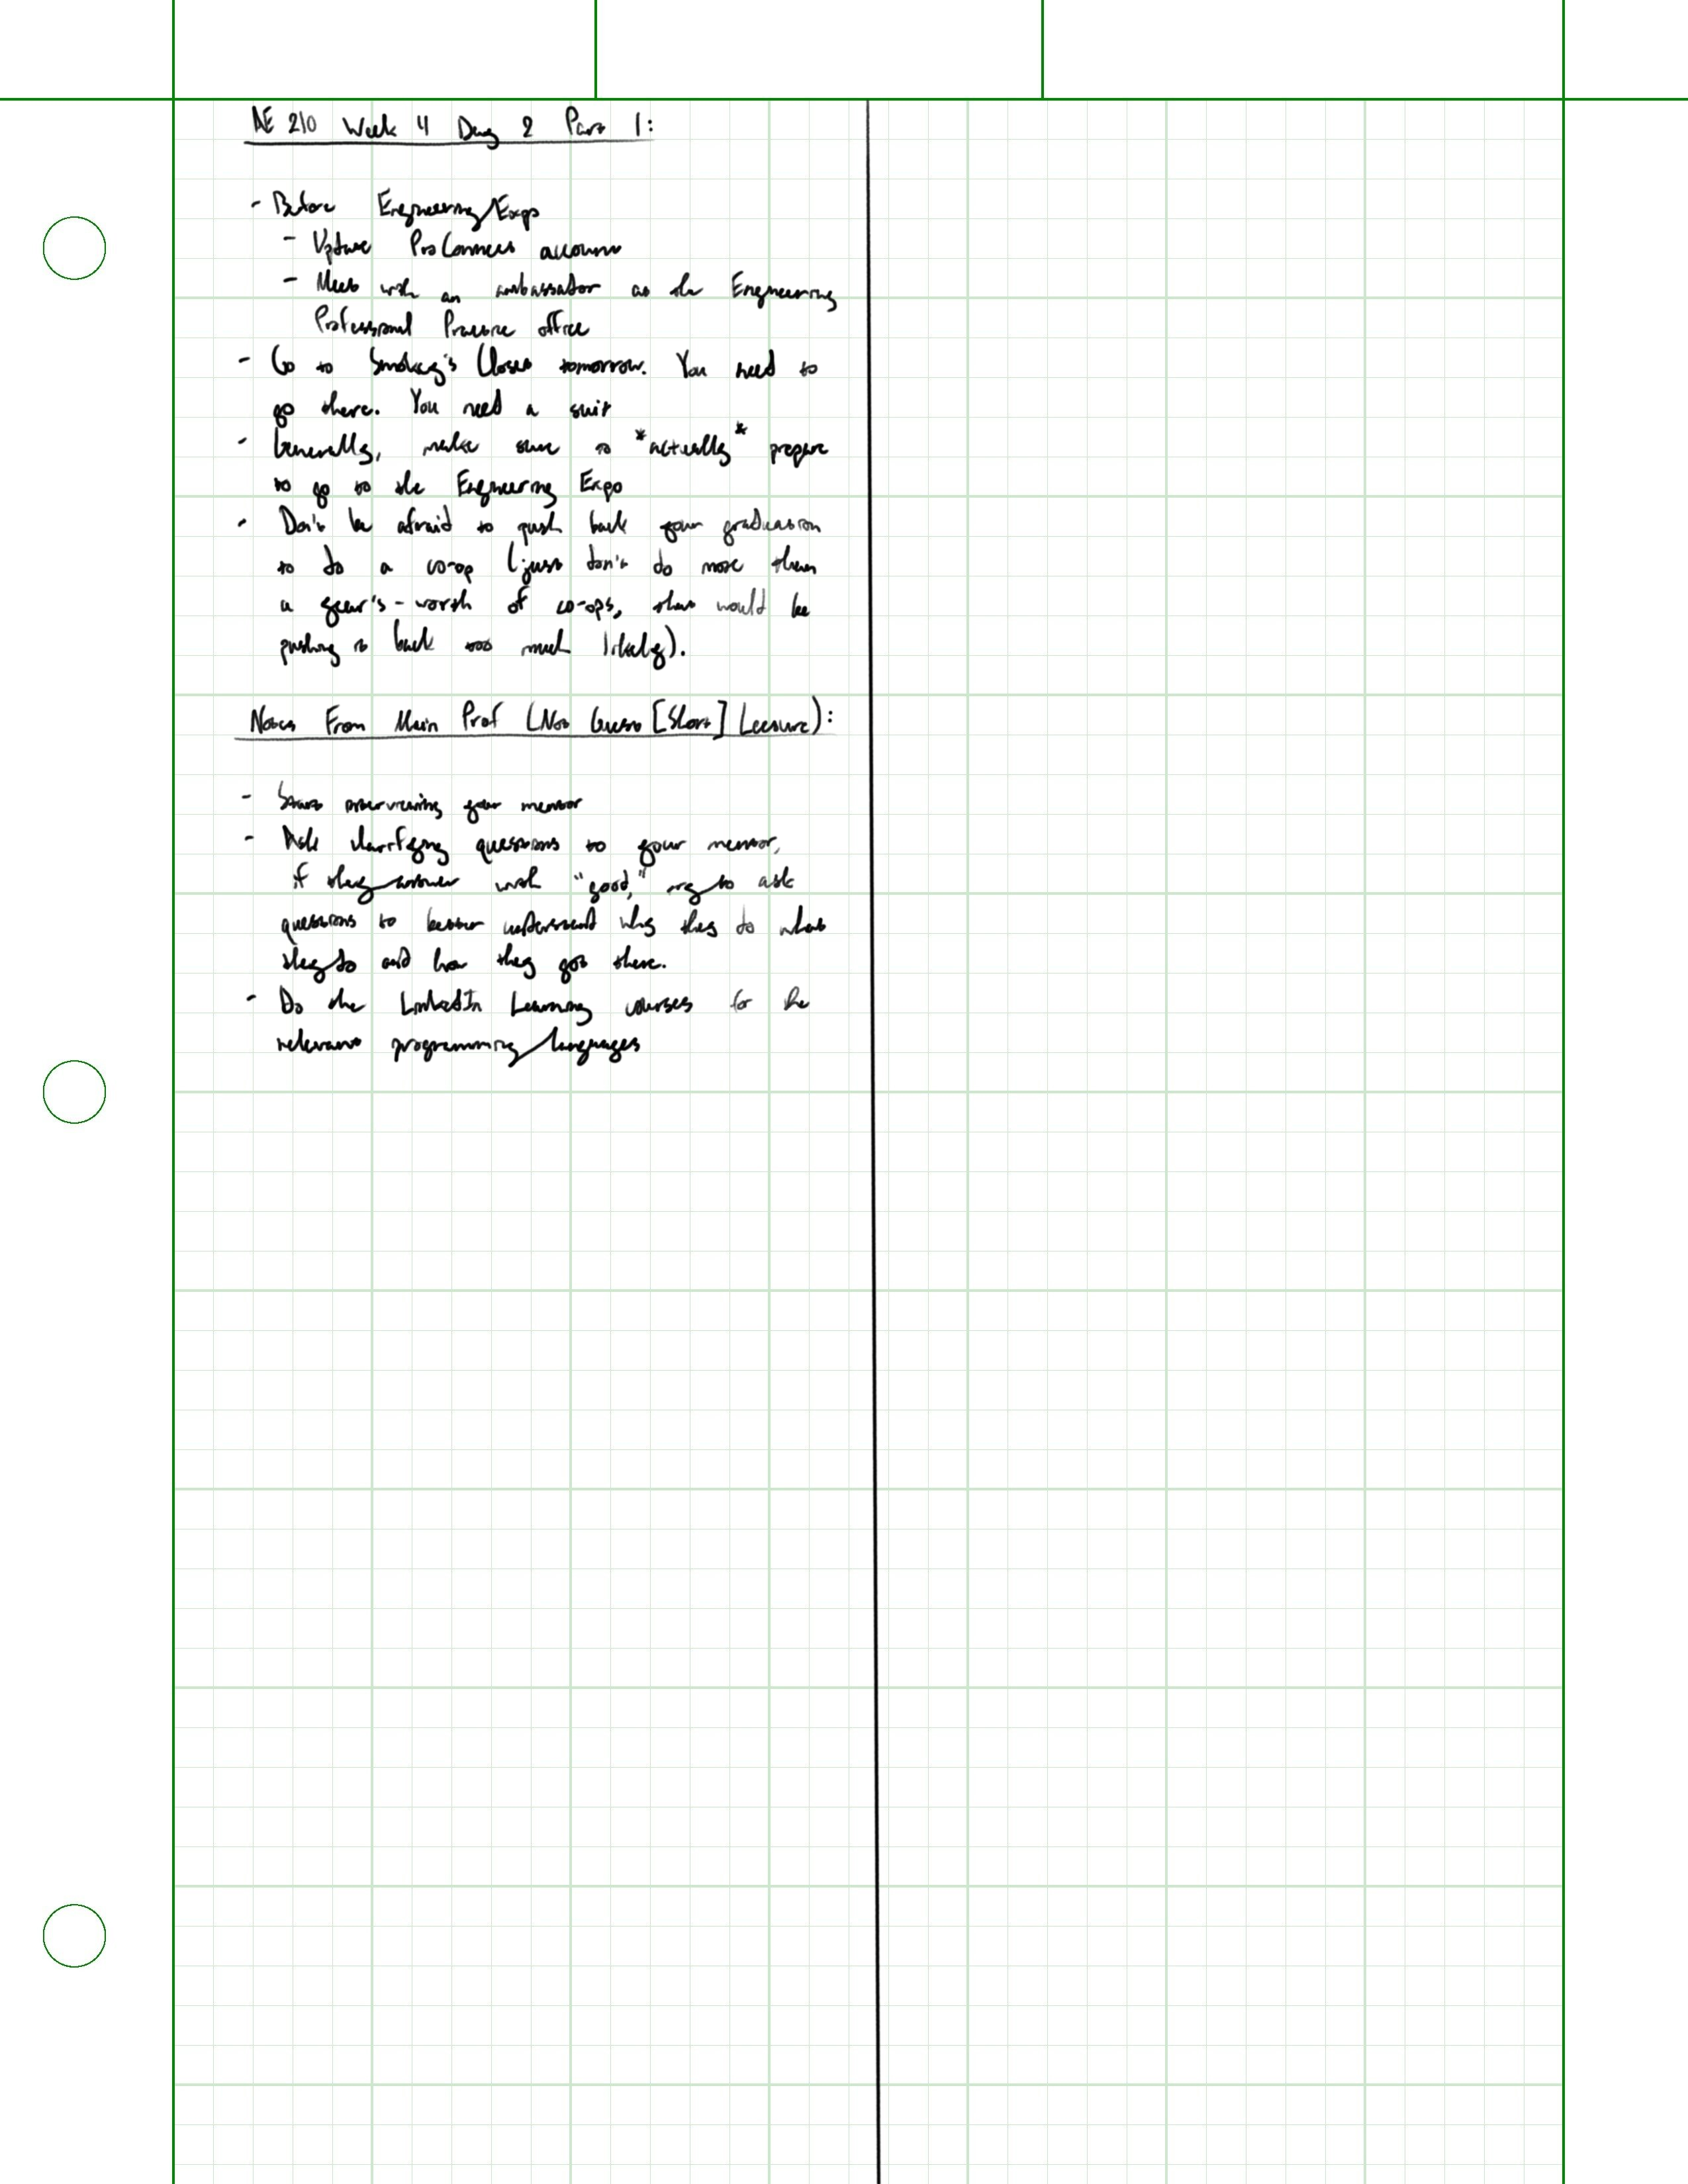 AE 210 Week 4 Day 2 Part 1:
- Before Engineering Expo
- Update ProConnect account
- Meet with an ambassador at the Engineering
Professional Practice office
- Go to Smokey's Closet tomorrow. You need to
go there. You need a suit
- Generally, make sure to *actually* prepare
to go to the Engineering Expo
- Don't be afraid to push back your graduation
to do a co-op (just don't do more than
a year's-worth of co-ops, that would be
pushing it back too much likely).
Notes From Main Prof (Not Guest [Short] Lecture):
- Start interviewing your mentor
- Ask clarifying questions to your mentor,
if they answer with "good," try to ask
questions to better understand why they do what
they do and how they got there.
- Do the LinkedIn Learning courses for the
relevant programming languages